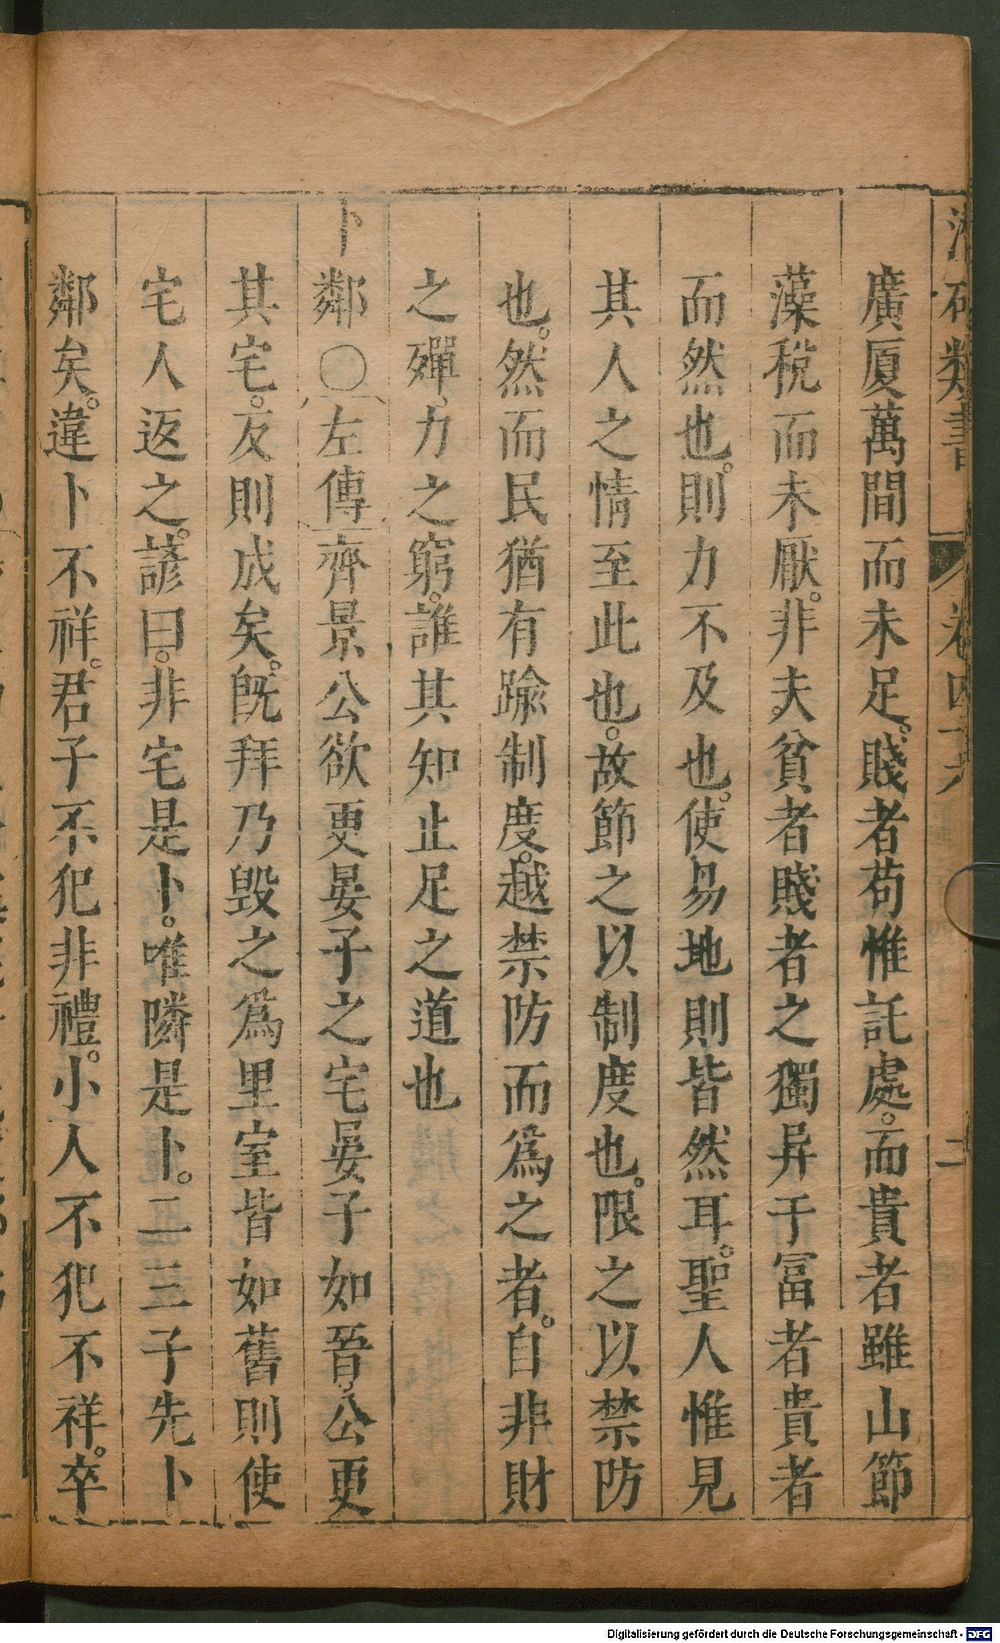 廣厦萬間而未足。賤者苟惟託處。而貴者雖山節
藻梲而未厭。非夫貧者賤者之獨异于富者貴者
而然也。則力不及也。使易地則皆然耳。聖人惟見
其人之情至此也。故節之以制度也。限之以禁防
也。然而民猶有踰制度。越禁防而爲之者。自非財
之殫。力之窮。誰其知止足之道也
卜鄰〇左傳齊景公欲更晏子之宅晏子如晉。公更
其宅。反則成矣。旣拜乃毁之爲里室皆如舊則使
宅人返之。諺曰。非宅是卜。唯隣是卜。二三子先卜
鄰矣。違卜不祥。君子不犯非禮。小人不犯不祥。卒
Digitalisierung gefördert durch die Deutsche Forschungsgemeinschaft - DFG